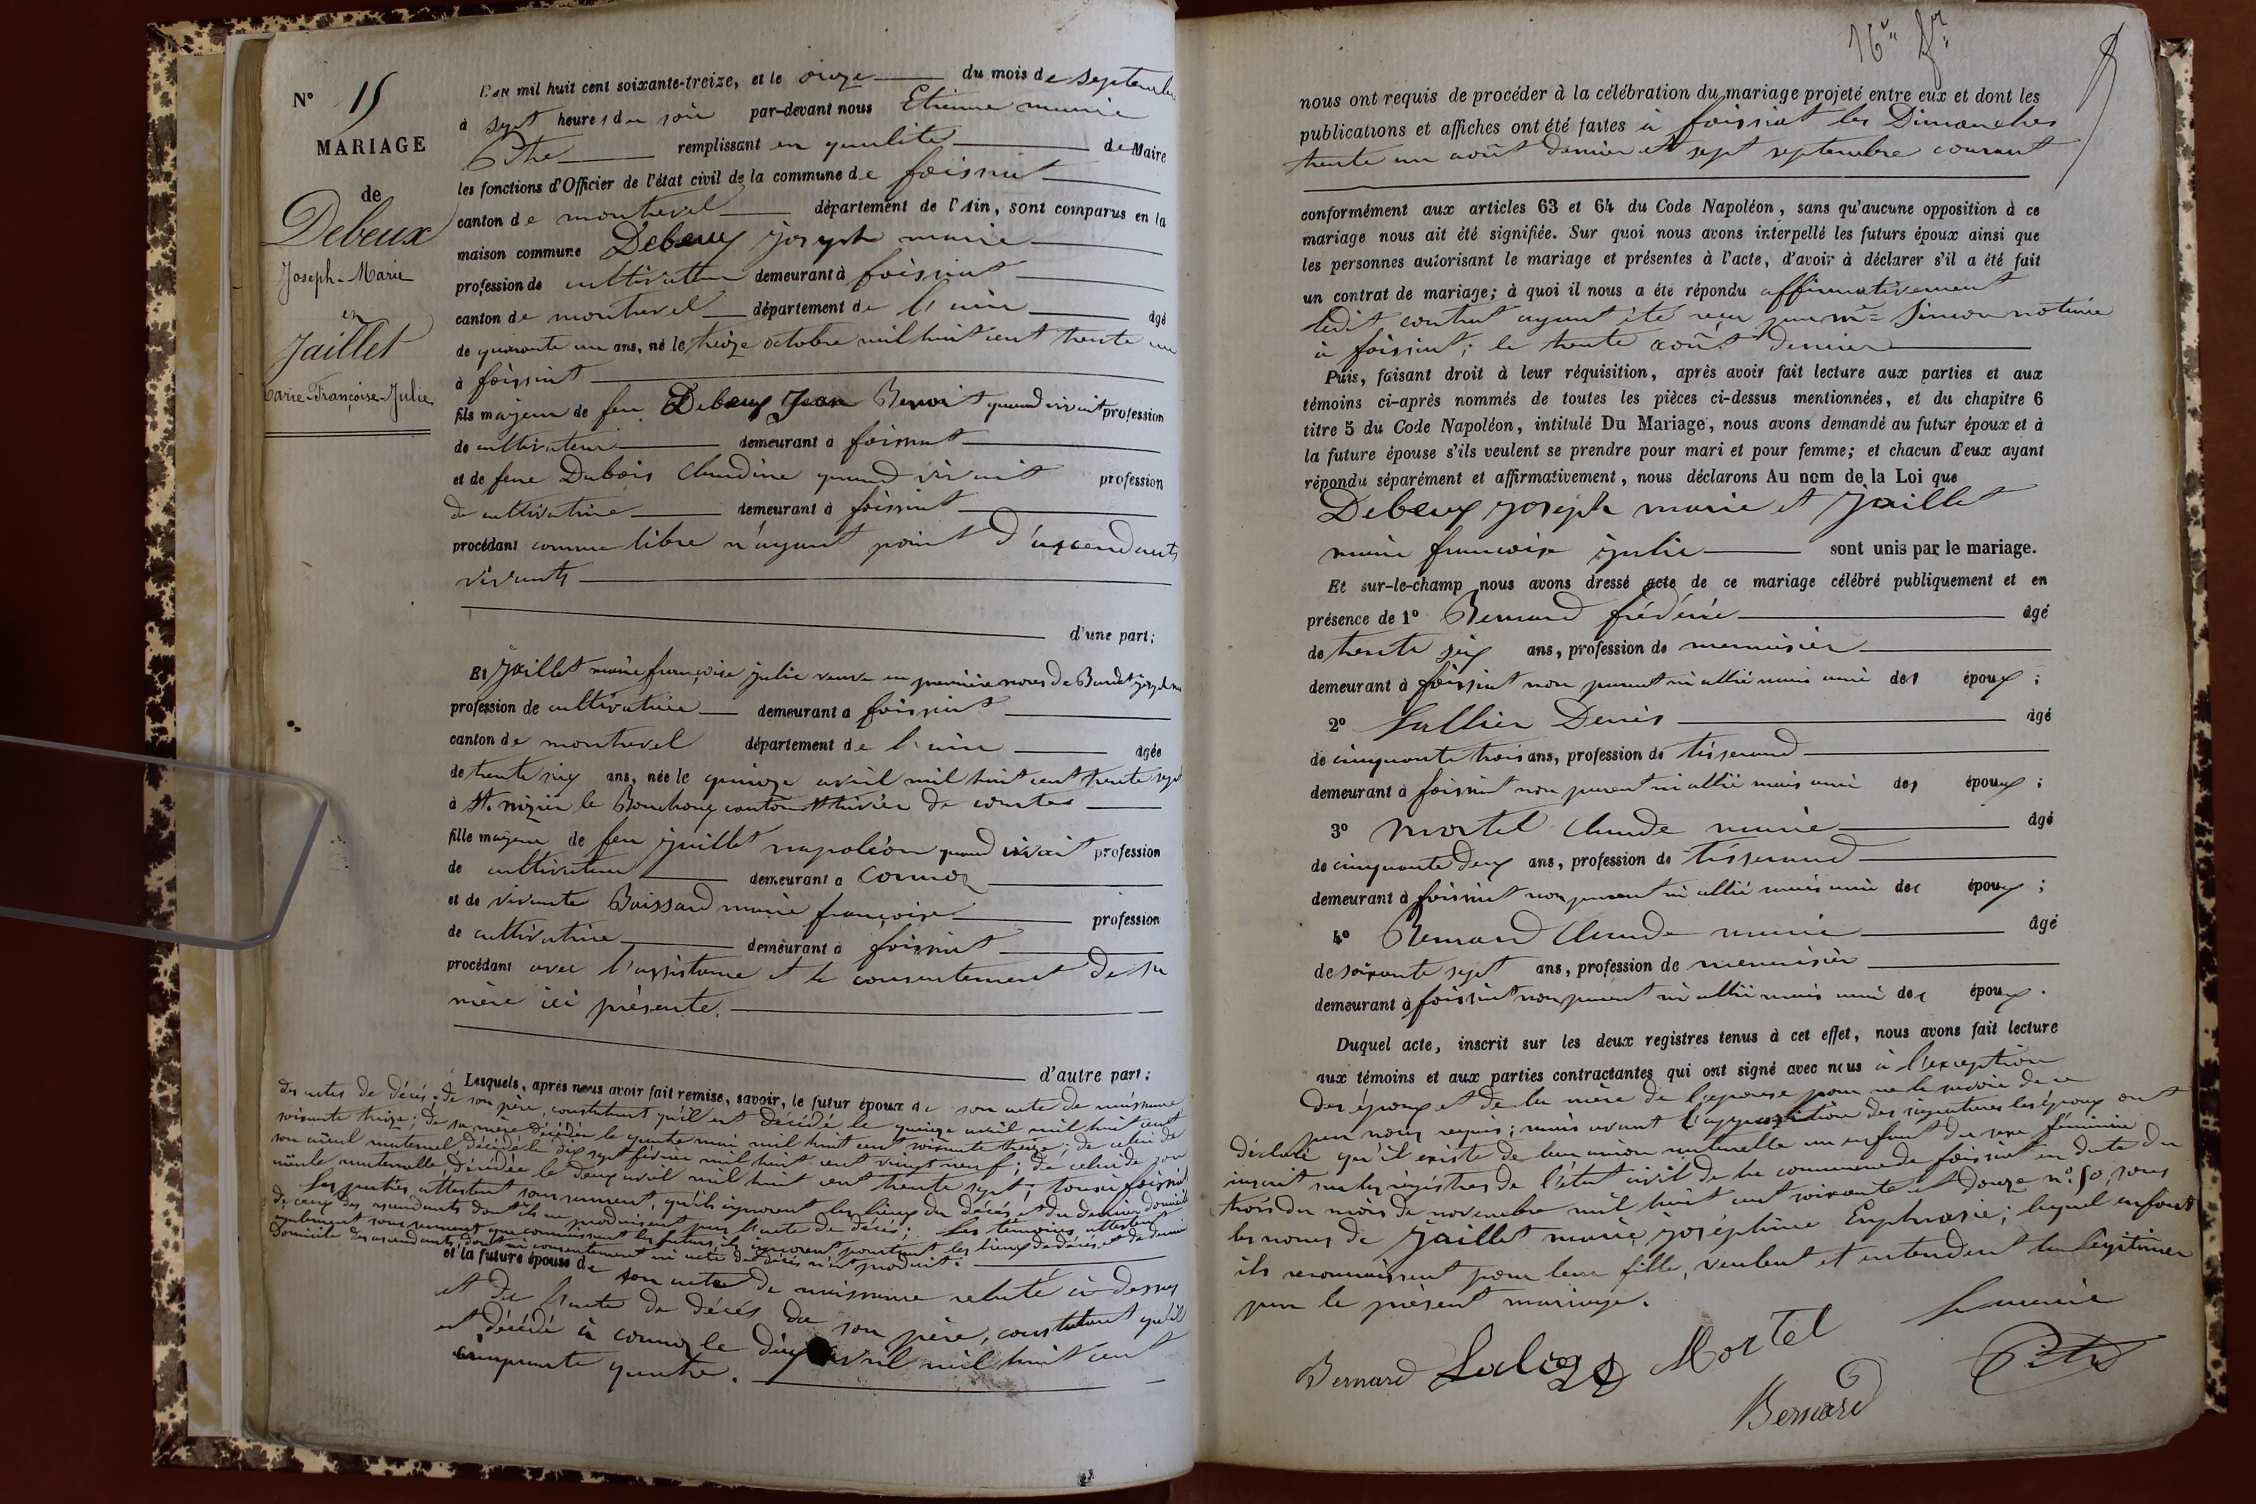 N° 15
MARIAGE
de
Debeux
Joseph-Marie
et
Jaillet
Marie-Françoise-Julie
L'an mil huit cent soixante-treize, et le onze du mois de septembre
à sept heures du soir par-devant nous Etienne marie
Pithe remplissant en qualité de Maire
les fonctions d'Officier de l'état civil de la commune de foissiat
canton de montrevel département de l'Ain, sont comparus en la
maison commune Debeux joseph marie
profession de cultivateur demeurant à foissiat
canton de montrevel département de l'ain âgé
de quarante un ans, né le treize octobre mil huit cent trente un
à foissiat
fils majeur de feu Debeux Jean Benoit quand vivait profession
de cultivateur demeurant à foissiat
et de feue Dubois Claudine quand vivait profession
de cultivatrice demeurant à foissiat
procédant comme libre n'ayant point d'ascendants
vivants
d'une part;
Et Jaillet marie françoise julie veuve en première noces de joseph
profession de cultivatrice demeurant à foissiat
canton de montrevel département de l'ain âgée
de trente six ans, née le quinze avril mil huit cent trente sept
à St. nizier le Bouchoux canton St trivier de courtes
fille majeure de feu jaillet napoléon quand vivait profession
de cultivateur demeurant à Cormoz
et de vivante Buissard marie françoise profession
de cultivatrice demeurant à foissiat
procédant avec l'assistance et le consentement de sa
mère ici présente.
d'autre part;
Lesquels, après nous avoir fait remise, savoir, le futur époux de son acte de naissance
des actes de décès de son père, constatant qu'il est décédé le quinze avril mil huit cent
soixante treize; de sa mère décédée le quatre mai mil huit cent soixante treize; de celui de
son aïeul maternel, décédé le dix sept février mil huit cent vingt neuf; de celui de son
aïeule maternelle, décédée le deux avril mil huit cent trente sept; tous à foissiat
Les parties attestent sous serment, qu'ils ignorent les lieux du décès et du dernier domicile
de ceux des ascendants dont ils ne produisent pas l'acte de décès; Les témoins attestent
également sous serment que connaissant les futurs, ils ignorent pourtant les lieux de décès et de dernier
domicile des ascendants, dont ni consentement ni acte de décès n'est produit.
et la future épouse de son acte de naissance relaté ci dessus
et de l'acte de décès de son père, constatant qu'il
est décédé à cormoz le dix avril mil huit cent
cinquante quatre.
16e
nous ont requis de procéder à la célébration du mariage projeté entre eux et dont les
publications et affiches ont été faites à foissiat les Dimanches
trente un août dernier et sept septembre courant
conformément aux articles 63 et 64 du Code Napoléon, sans qu'aucune opposition à ce
mariage nous ait été signifiée. Sur quoi nous avons interpellé les futurs époux ainsi que
les personnes autorisant le mariage et présentes à l'acte, d'avoir à déclarer s'il a été fait
un contrat de mariage; à quoi il nous a été répondu affirmativement
ledit contrat ayant été reçu par me Simeon notaire
à foissiat; le trente août dernier
Puis, faisant droit à leur réquisition, après avoir fait lecture aux parties et aux
témoins ci-après nommés de toutes les pièces ci-dessus mentionnées, et du chapitre 6
titre 5 du Code Napoléon, intitulé Du Mariage, nous avons demandé au futur époux et à
la future épouse s'ils veulent se prendre pour mari et pour femme; et chacun d'eux ayant
répondu séparément et affirmativement, nous déclarons Au nom de la Loi que
Debeux joseph marie et Jaillet
marie francoise julie sont unis par le mariage.
Et sur-le-champ nous avons dressé acte de ce mariage célébré publiquement et en
présence de 1° Bernard frédéric âgé
de trente six ans, profession de menuisier
demeurant à foissiat non parent ni allié mais ami des époux;
2° Sallier Denis âgé
de cinquante trois ans, profession de tisserand
demeurant à foissiat non parent ni allié mais ami des époux;
3° Mortel Claude marie âgé
de cinquante deux ans, profession de tisserand
demeurant à foissiat non parent ni allié mais ami des époux;
4° Bernard Claude marie âgé
de soixante sept ans, profession de menuisier
demeurant à foissiat non parent ni allié mais ami des époux.
Duquel acte, inscrit sur les deux registres tenus à cet effet, nous avons fait lecture
aux témoins et aux parties contractantes qui ont signé avec nous à l'exception
des époux et de la mère de l'épouse pour ne le savoir de ce
par nous requis; mais avant l'apposition des signatures les époux ont
déclaré qu'il existe de leur union naturelle un enfant du sexe féminin
inscrit sur les régistres de l'état civil de la commune de foissiat en date du
trois du mois de novembre mil huit cent soixante et douze n° 50, sous
les noms de Jaillet marie joséphine Euphrasie; lequel enfant
ils reconnaissent pour leur fille, veulent et entendent la légitimer
par le présent mariage.
Bernard Mortel Le maire
Bernard